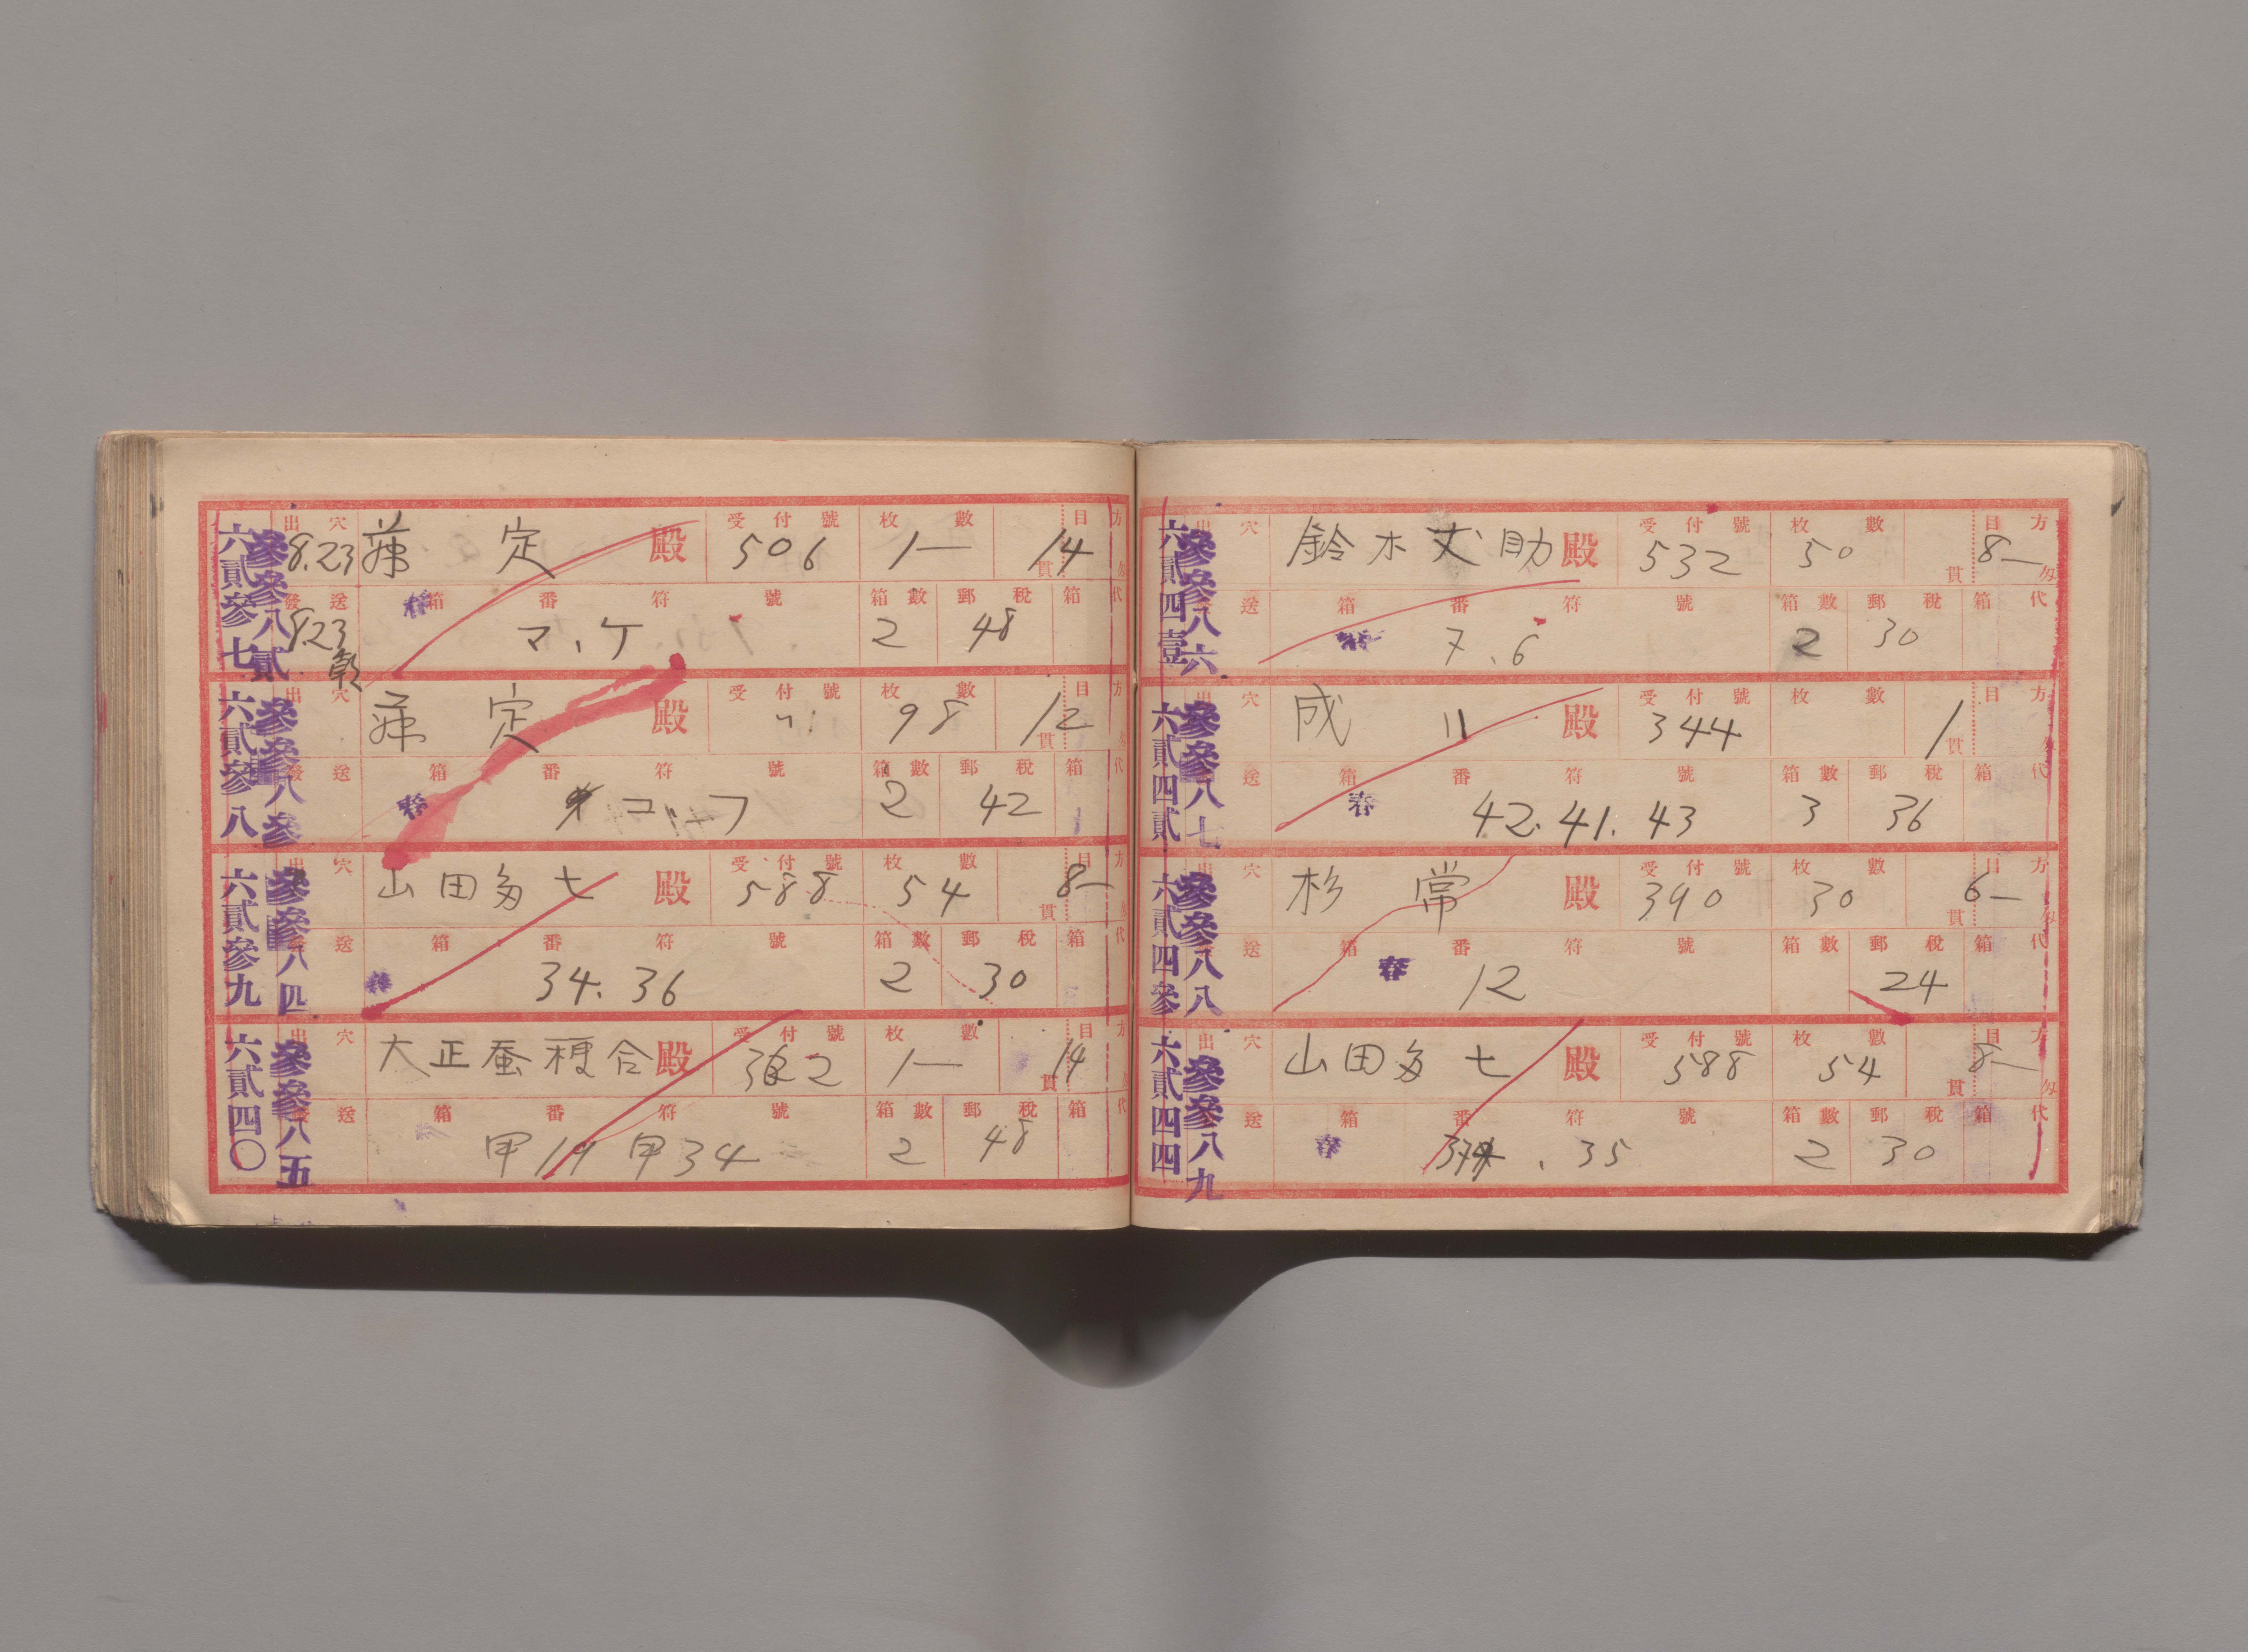 六貳參七 參參八貳
出穴 8.23 定 殿 受付號 506 枚數 1— 14 貫 目方 匁
發送 8.23 乾 春 箱番符號 マ、ケ 箱數 2 郵稅 48 箱代
六貳參八 參參八參
出穴 定 殿 受付號 〃 枚數 98 12 貫 目方
發送 春 箱番符號 コ、フ 箱數 2 郵稅 42 箱代
六貳參九 參參八四
出穴 山田多七 殿 受付號 588 枚數 54 貫 目方 8— 匁
發送 春 箱番符號 34. 36 箱數 2 郵稅 30 箱代
六貳四〇 參參八五
出穴 大正蚕種合 殿 受付號 枚數 1— 14 貫 目方
發送 箱番符號 甲19 甲34 箱數 2 郵稅 48 箱代
六貳四壹 參參八六
出穴 鈴木丈助 殿 受付號 532 枚數 50 貫 目方 8— 匁
送 春 箱番符號 7.6 箱數 2 郵稅 30 箱代
六貳四貳 參參八七
出穴 成川 殿 受付號 344 枚數 1 貫 目方 匁
送 春 箱番符號 42. 41. 43 箱數 3 郵稅 36 箱代
六貳四參 參參八八
出穴 杉常 殿 受付號 390 枚數 30 貫 目方 6— 匁
送 春 箱番符號 12 箱數 郵稅 24 箱代
六貳四四 參參八九
出穴 山田多七 殿 受付號 588 枚數 54 貫 目方 8— 匁
送 春 箱番符號 . 35 箱數 2 郵稅 30 箱代